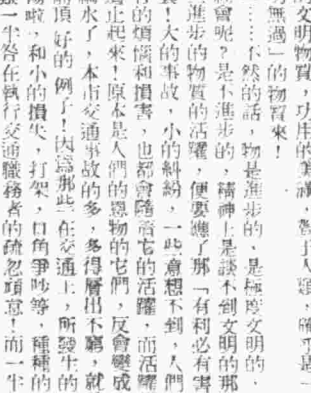 文明物質，功用的美滿，
無過」的物質來！
……不然的話，物是進步的，是極度文明的，
會呢？是不進步的，精神上是談不到文明的那
進步的物質的活躍，便要應了那「有利必有害
！大的事故，小的糾紛，一些意想不到，人們
的煩惱和損害，也都會隨着它的活躍，而活躍
止起來！原本是人們的恩物的它們，反會變成
水了，本市交通事故的多，多得層出不窮，就
前頂好的例子！因爲那些在交通上，所發生的
啦，和小的損失，打架，口角爭吵等，種種的
一半咎在執行交通職務者的疏忽頑怠！而一半